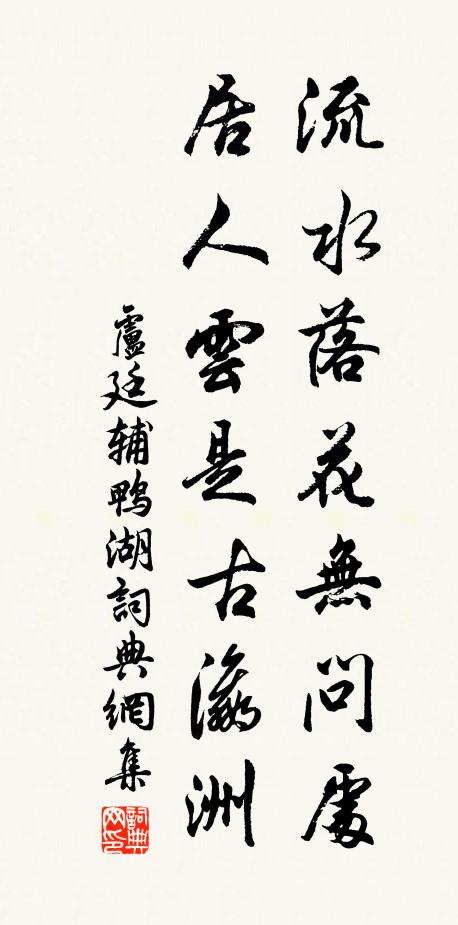 流水落花無問處
居人雲是古瀛洲
盧廷輔鴨湖詞典網集
詞典
网印